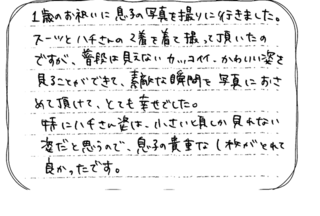 1歳のお祝いに息子の写真を撮りに行きました。
スーツとハチさんの2着を着て撮って頂いたの
ですが、普段は見えないカッコイイ、かわいい姿を
見ることができて、素敵な瞬間を写真におさ
めて頂けて、とても幸せでした。
特にハチさん姿は、小さいと見しか見れない
姿だと思うので、息子の貴重な1枚がとれて
良かったです。